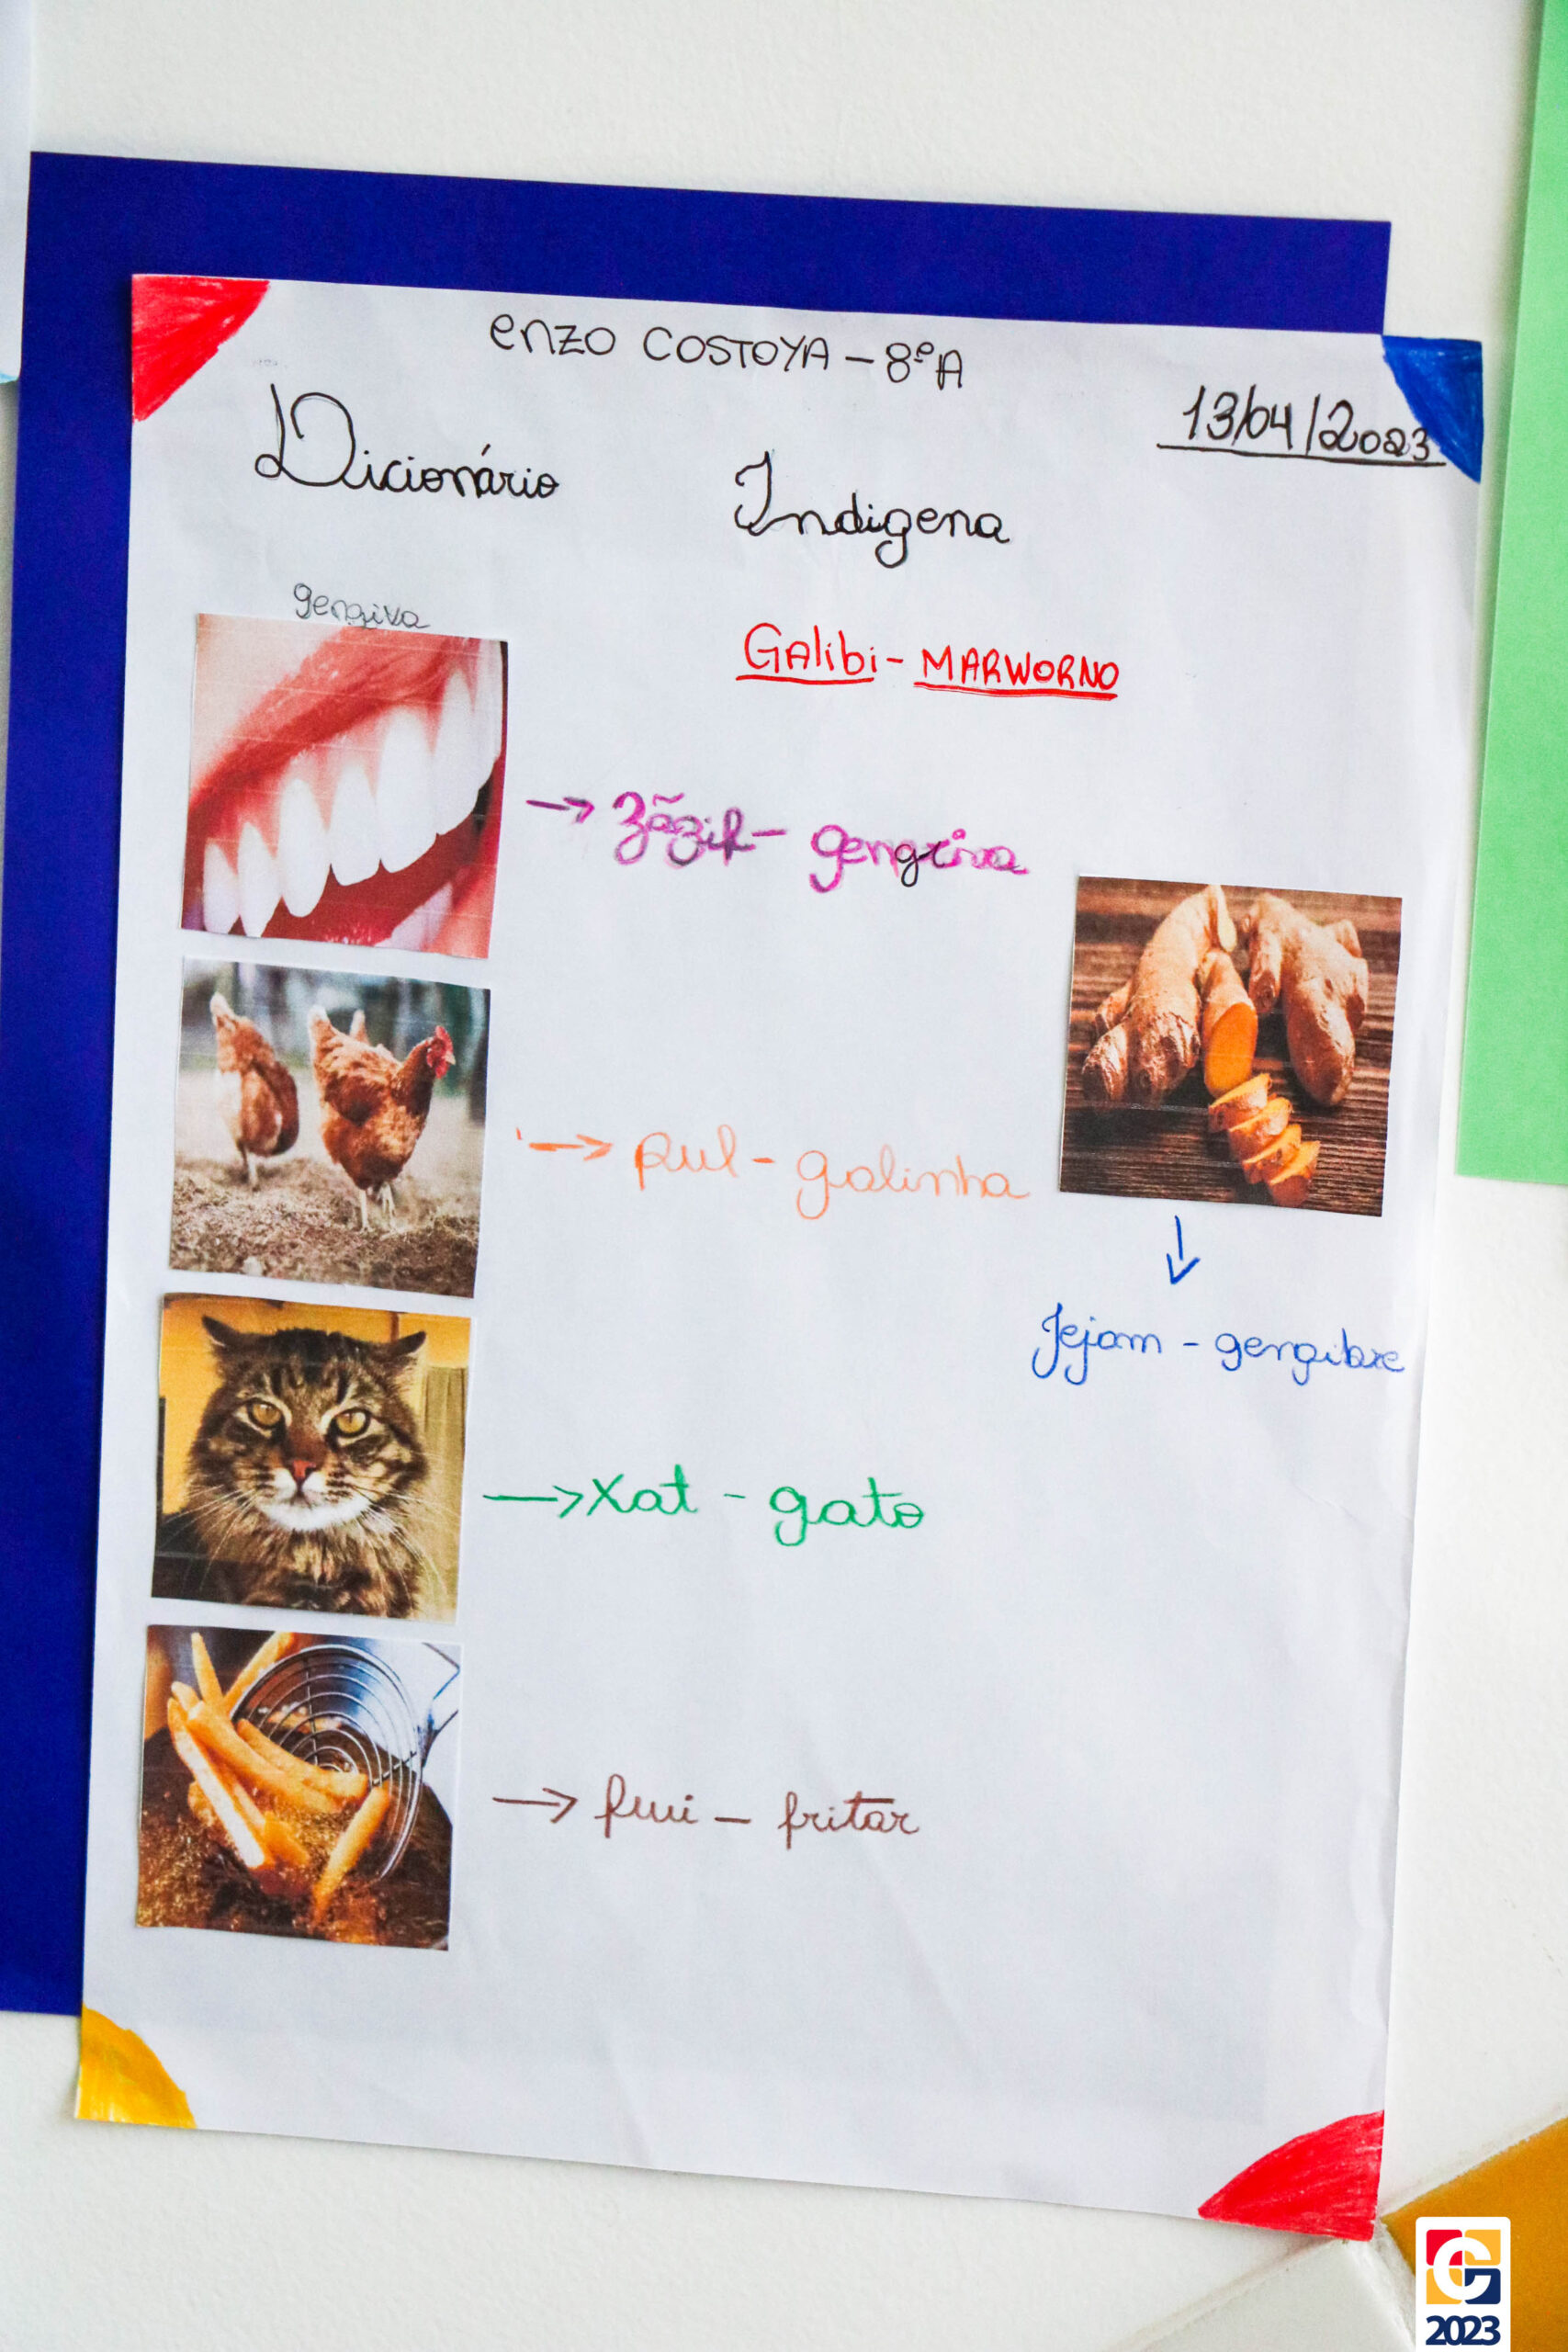 enzo COSTOYA - 8ºA
13/04/2023
Dicionário Indigena
gengiva
Galibi - MARWORNO
→ zãzif - gengiva
→ pul - galinha
Jejam - gengibre
→ xat - gato
→ fwi - fritar
2023